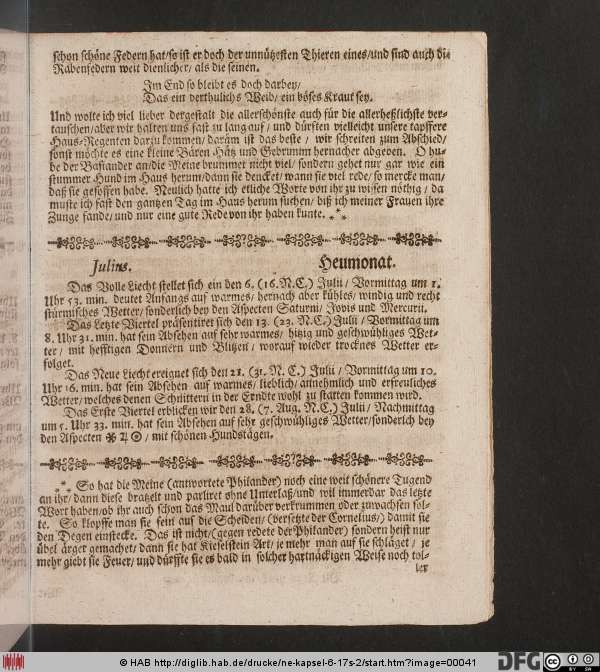 schon schöne Federn hat/so ist er doch der unnützesten Thieren eines/und sind auch die
Rabenfedern weit dienlicher/ als die seinen.
Im End so bleibt es doch darbey/
Das ein verthulichs Weib/ ein böses Kraut sey.
Und wolte ich viel lieber dergestalt die allerschönste auch für die allerheßlichste ver-
tauschen/aber wir halten uns fast zu lang auf/ und dürfften vielleicht unsere tapffere
Haus-Regenten darzu kommen/ darum ist das beste / wir schreiten zum Abschied/
sonst möchte es eine kleine Bären Hätz und Gebrumm hernacher abgeben. O hu-
be der Bastianer an/die Meine brummet nicht viel/ sondern gehet nur gar wie ein
stummer Hund im Haus herum/dann sie dencket/ wann sie viel rede/ so mercke man/
daß sie gesoffen habe. Neulich hatte ich etliche Worte von ihr zu wissen nöthig/ da
muste ich fast den gantzen Tag im Haus herum suchen/ biß ich meiner Frauen ihre
Zunge fande/ und nur eine gute Rede von ihr haben kunte. ***
Julius. Heumonat.
Das Volle Liecht stellet sich ein den 6. (16. N.C.) Julii/ Vormittag um 1.
Uhr 53. min. deutet Anfangs auf warmes/ hernach aber kühles/ windig und recht
stürmisches Wetter/ sonderlich bey den Aspecten Saturni/ Jovis und Mercurii.
Das Letzte Viertel präsentiret sich den 13. (23. N.C.) Julii/ Vormittag um
8. Uhr 31. min. hat sein Absehen auf sehr warmes/ hitzig und geschwühliges Wet-
ter/ mit hefftigen Donnern und Blitzen/ worauf wieder trocknes Wetter er-
folget.
Das Neue Liecht ereignet sich den 21. (31. N. C.) Julii/ Vormittag um 10.
Uhr 16. min. hat sein Absehen auf warmes/ lieblich/ annehmlich und erfreuliches
Wetter/ welches denen Schnittern in der Erndte wohl zu statten kommen wird.
Das Erste Viertel erblicken wir den 28. (7. Aug. N.C.) Julii/ Nachmittag
um 5. Uhr 33. min. hat sein Absehen auf sehr geschwühliges Wetter/sonderlich bey
den Aspecten ✱ ♃ ☉/ mit schönen Hundstägen.
*** So hat die Meine (antwortete Philander) noch eine weit schönere Tugend
an ihr/ dann diese bratzelt und parliret ohne Unterlaß/und will immerdar das letzte
Wort haben/ob ihr auch schon das Maul darüber verkrummen oder zuwachsen sol-
te. So klopffe man sie fein auf die Scheiden/ (versetzte der Cornelius/) damit sie
den Degen einstecke. Das ist nicht/(gegen redete der Philander) sondern heist nur
übel ärger gemachet/ dann sie hat Kieselstein Art/ je mehr man auf sie schläget / je
mehr giebt sie Feuer/ und dürffte sie es bald in solcher hartnäckigen Weise noch tol-
ler
© HAB http://diglib.hab.de/drucke/ne-kapsel-6-17s-2/start.htm?image=00041
DFG
CC BY SA